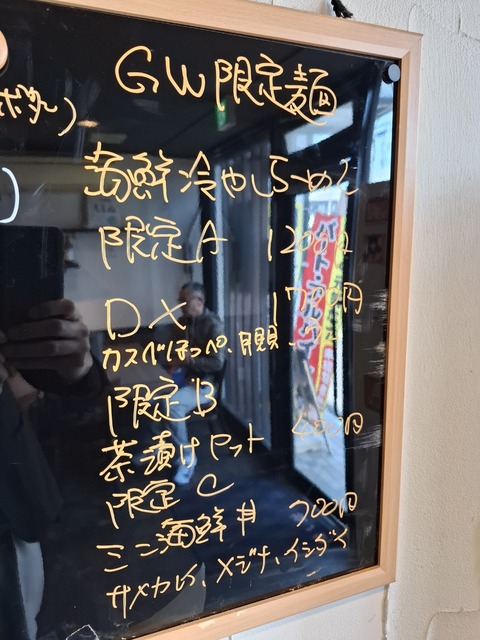 GW限定麺
海鮮冷やしらーめん
限定A 1200円
DX 1700円
カスベほっぺ、月見、
限定B
茶漬けセット 400円
限定C
ミニ海鮮丼 700円
サメカレイ、メジナ、イシダイ